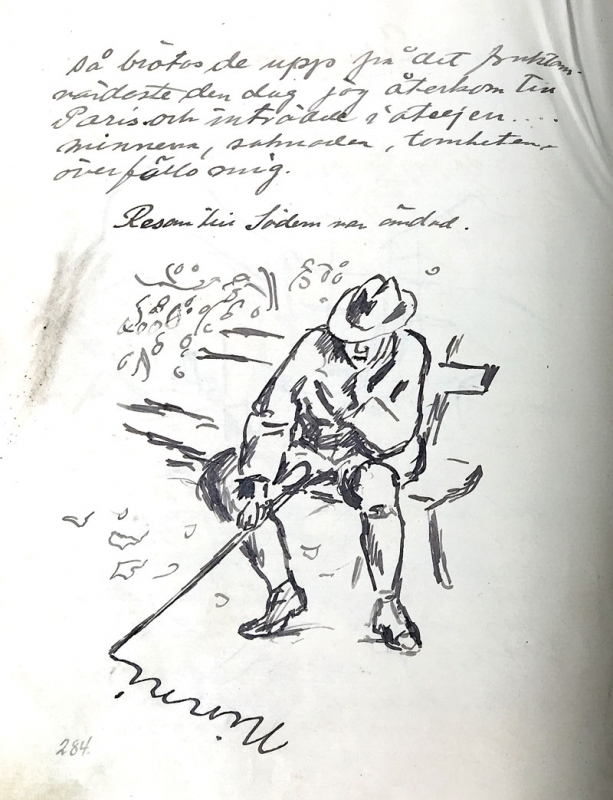 så brötos de upp på det fruktans-
värdaste den dag jag återkom till
Paris och inträdde i ateljen....
minnena, saknaden, tomheten
överföllo mig.
Resan till Södern var ändad.
Mimmi
284.